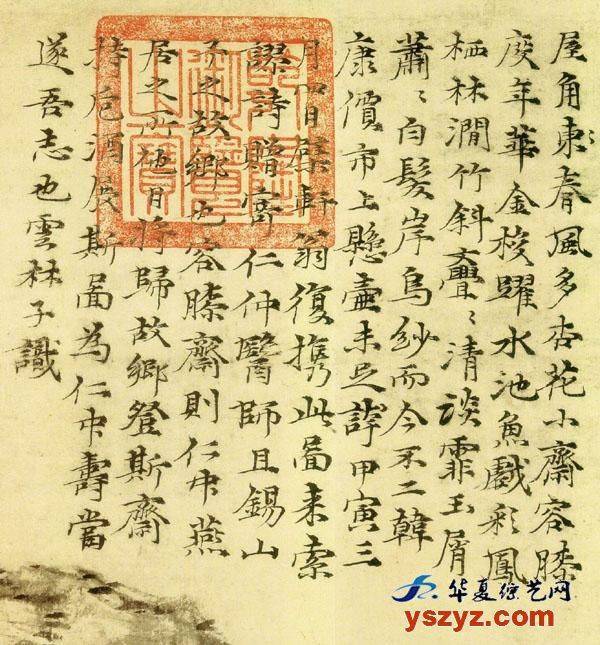 屋角東春風多杏花小齋容膝
度年華金梭躍水池魚戲彩鳳
栖林澗竹斜亹〻清談霏玉屑
蕭〻白髮岸烏紗而今不二韓
康價市上懸壺未足誇甲寅三
月四日檗軒翁復攜此圖來索
謬詩贈寄仁仲醫師且錫山
予之故鄉也容膝齋則仁中燕
居之所他日將歸故鄉登斯齋
持卮酒展斯圖為仁中壽當
遂吾志也雲林子識
御覽
之寶
华夏综艺网
yszyz.com